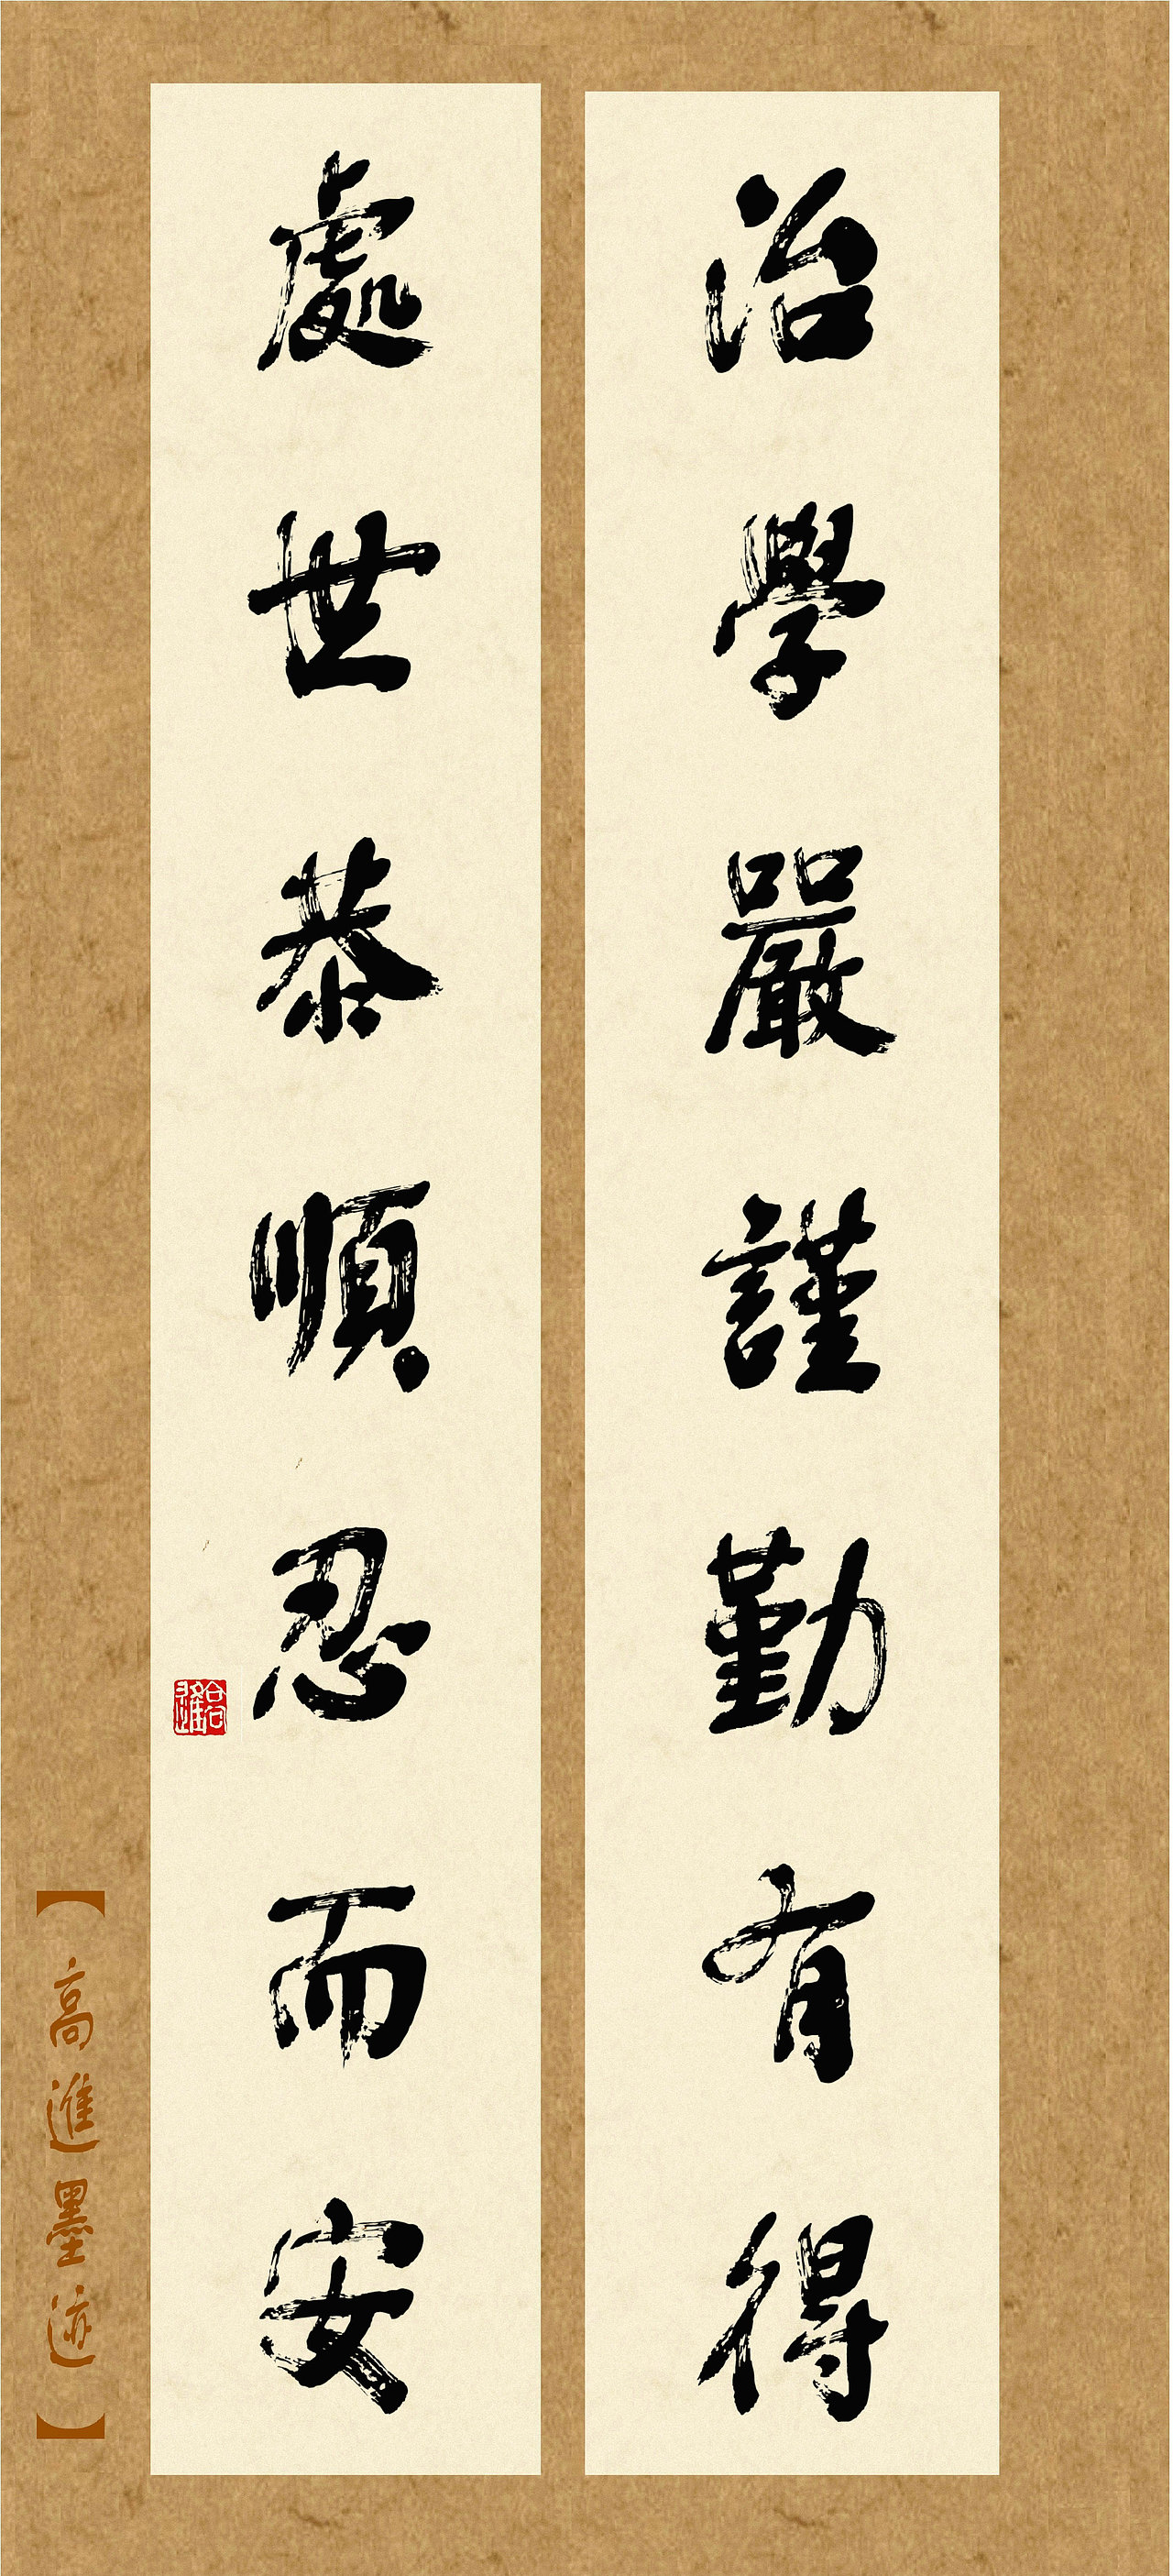 治學嚴謹勤有得
處世恭順忍而安
【高進墨迹】